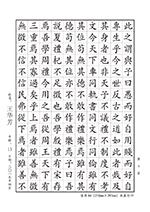 此之謂與子曰愚而好自用賤而好自
專生乎今之世反古之道如此者烖及
其身者也非天子不議禮不制度不考
文今天下車同軌書同文行同倫雖有
其位苟無其德不敢作禮樂焉雖有其
德苟無其位亦不敢作禮樂焉子曰吾
說夏禮杞不足徵也吾學殷禮有宋存
焉吾學周禮今用之吾從周王天下有
三重焉其寡過矣乎上焉者雖善無徵
無徵不信不信民弗從下焉者雖善不